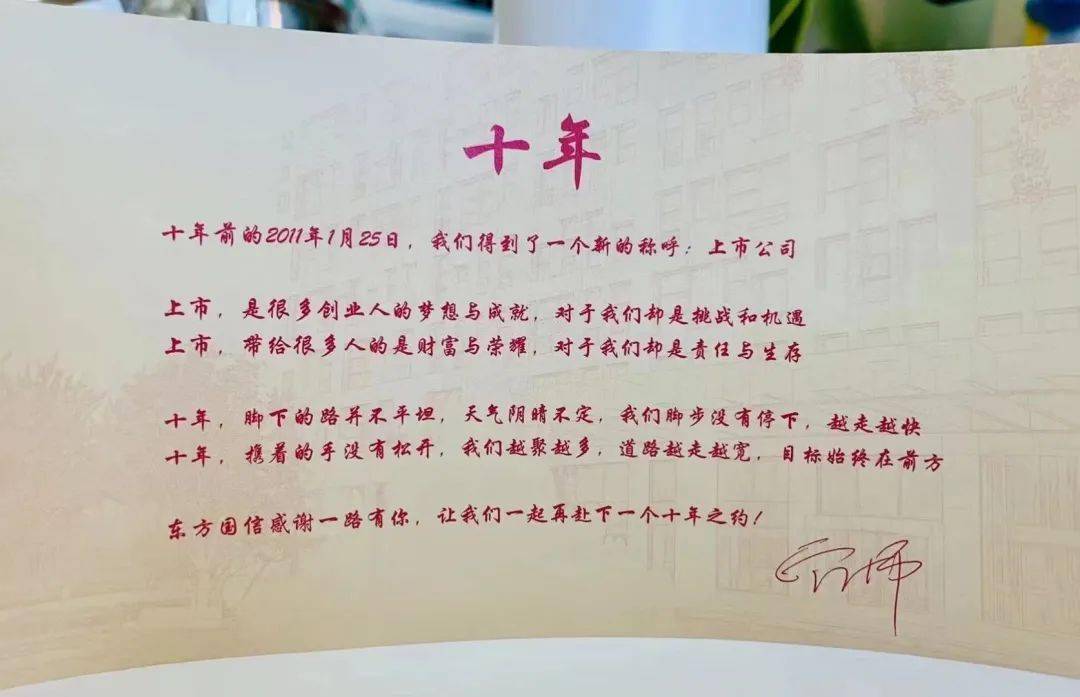 十年
十年前的2011年1月25日，我们得到了一个新的称呼：上市公司
上市，是很多创业人的梦想与成就，对于我们却是挑战和机遇
上市，带给很多人的是财富与荣耀，对于我们却是责任与生存
十年，脚下的路并不平坦，天气阴晴不定，我们脚步没有停下，越走越快
十年，携着的手没有松开，我们越聚越多，道路越走越宽，目标始终在前方
东方国信感谢一路有你，让我们一起再赴下一个十年之约！